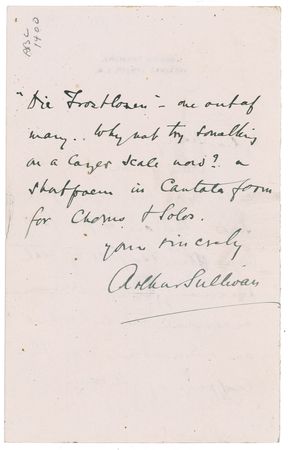 "Die Trostlosen" – one out of
many.. Why not try something
on a larger scale now? a
short poem in Cantata form
for Chorus & Solos.
yours sincerely
Arthur Sullivan